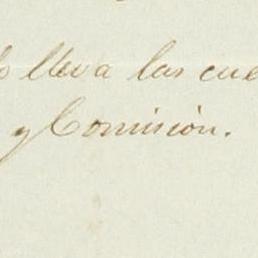 lo lleva las cue
y Comisión.